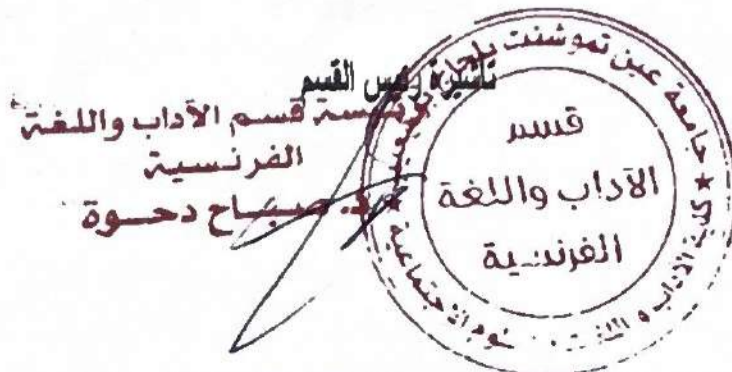 تأشيرة رئيس القسم
رئيسة قسم الآداب واللغة
الفرنسية
د. صباح دحوة
جامعة عين تموشنت بلحاج
قسم
الآداب واللغة
الفرنسية
★ كلية الآداب و اللغات
الاجتماعية ★